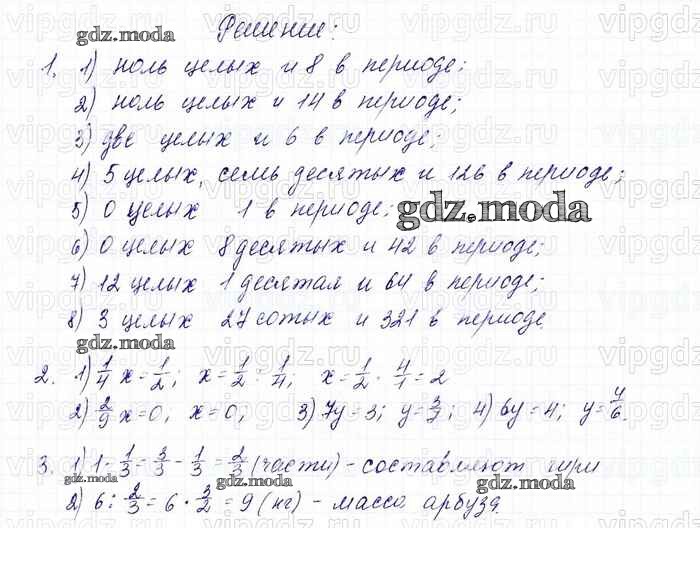 Решение:
gdz.moda
1. 1) ноль целых и 8 в периоде;
2) ноль целых и 14 в периоде;
3) две целых и 6 в периоде;
4) 5 целых, семь десятых и 126 в периоде;
5) 0 целых 1 в периоде;
gdz.moda
6) 0 целых 8 десятых и 42 в периоде;
7) 12 целых 1 десятая и 64 в периоде;
8) 3 целых 27 сотых и 321 в периоде.
gdz.moda
2. 1) 1/4 x = 1/2; x = 1/2 : 1/4; x = 1/2 · 4/1 = 2
2) 2/9 x = 0; x = 0; 3) 7y = 3; y = 3/7; 4) 6y = 4; y = 4/6.
3. 1) 1 - 1/3 = 3/3 - 1/3 = 2/3 (части) - составляют гири
gdz.moda gdz.moda gdz.moda
2) 6 : 2/3 = 6 · 3/2 = 9 (кг) - масса арбуза.